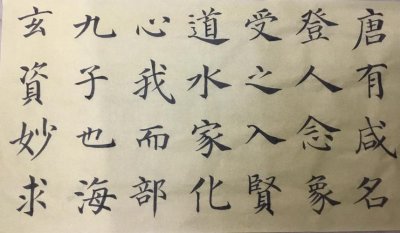 唐有咸名
登人念象
受之入賢
道水家化
心我而部
九子也海
玄資妙求